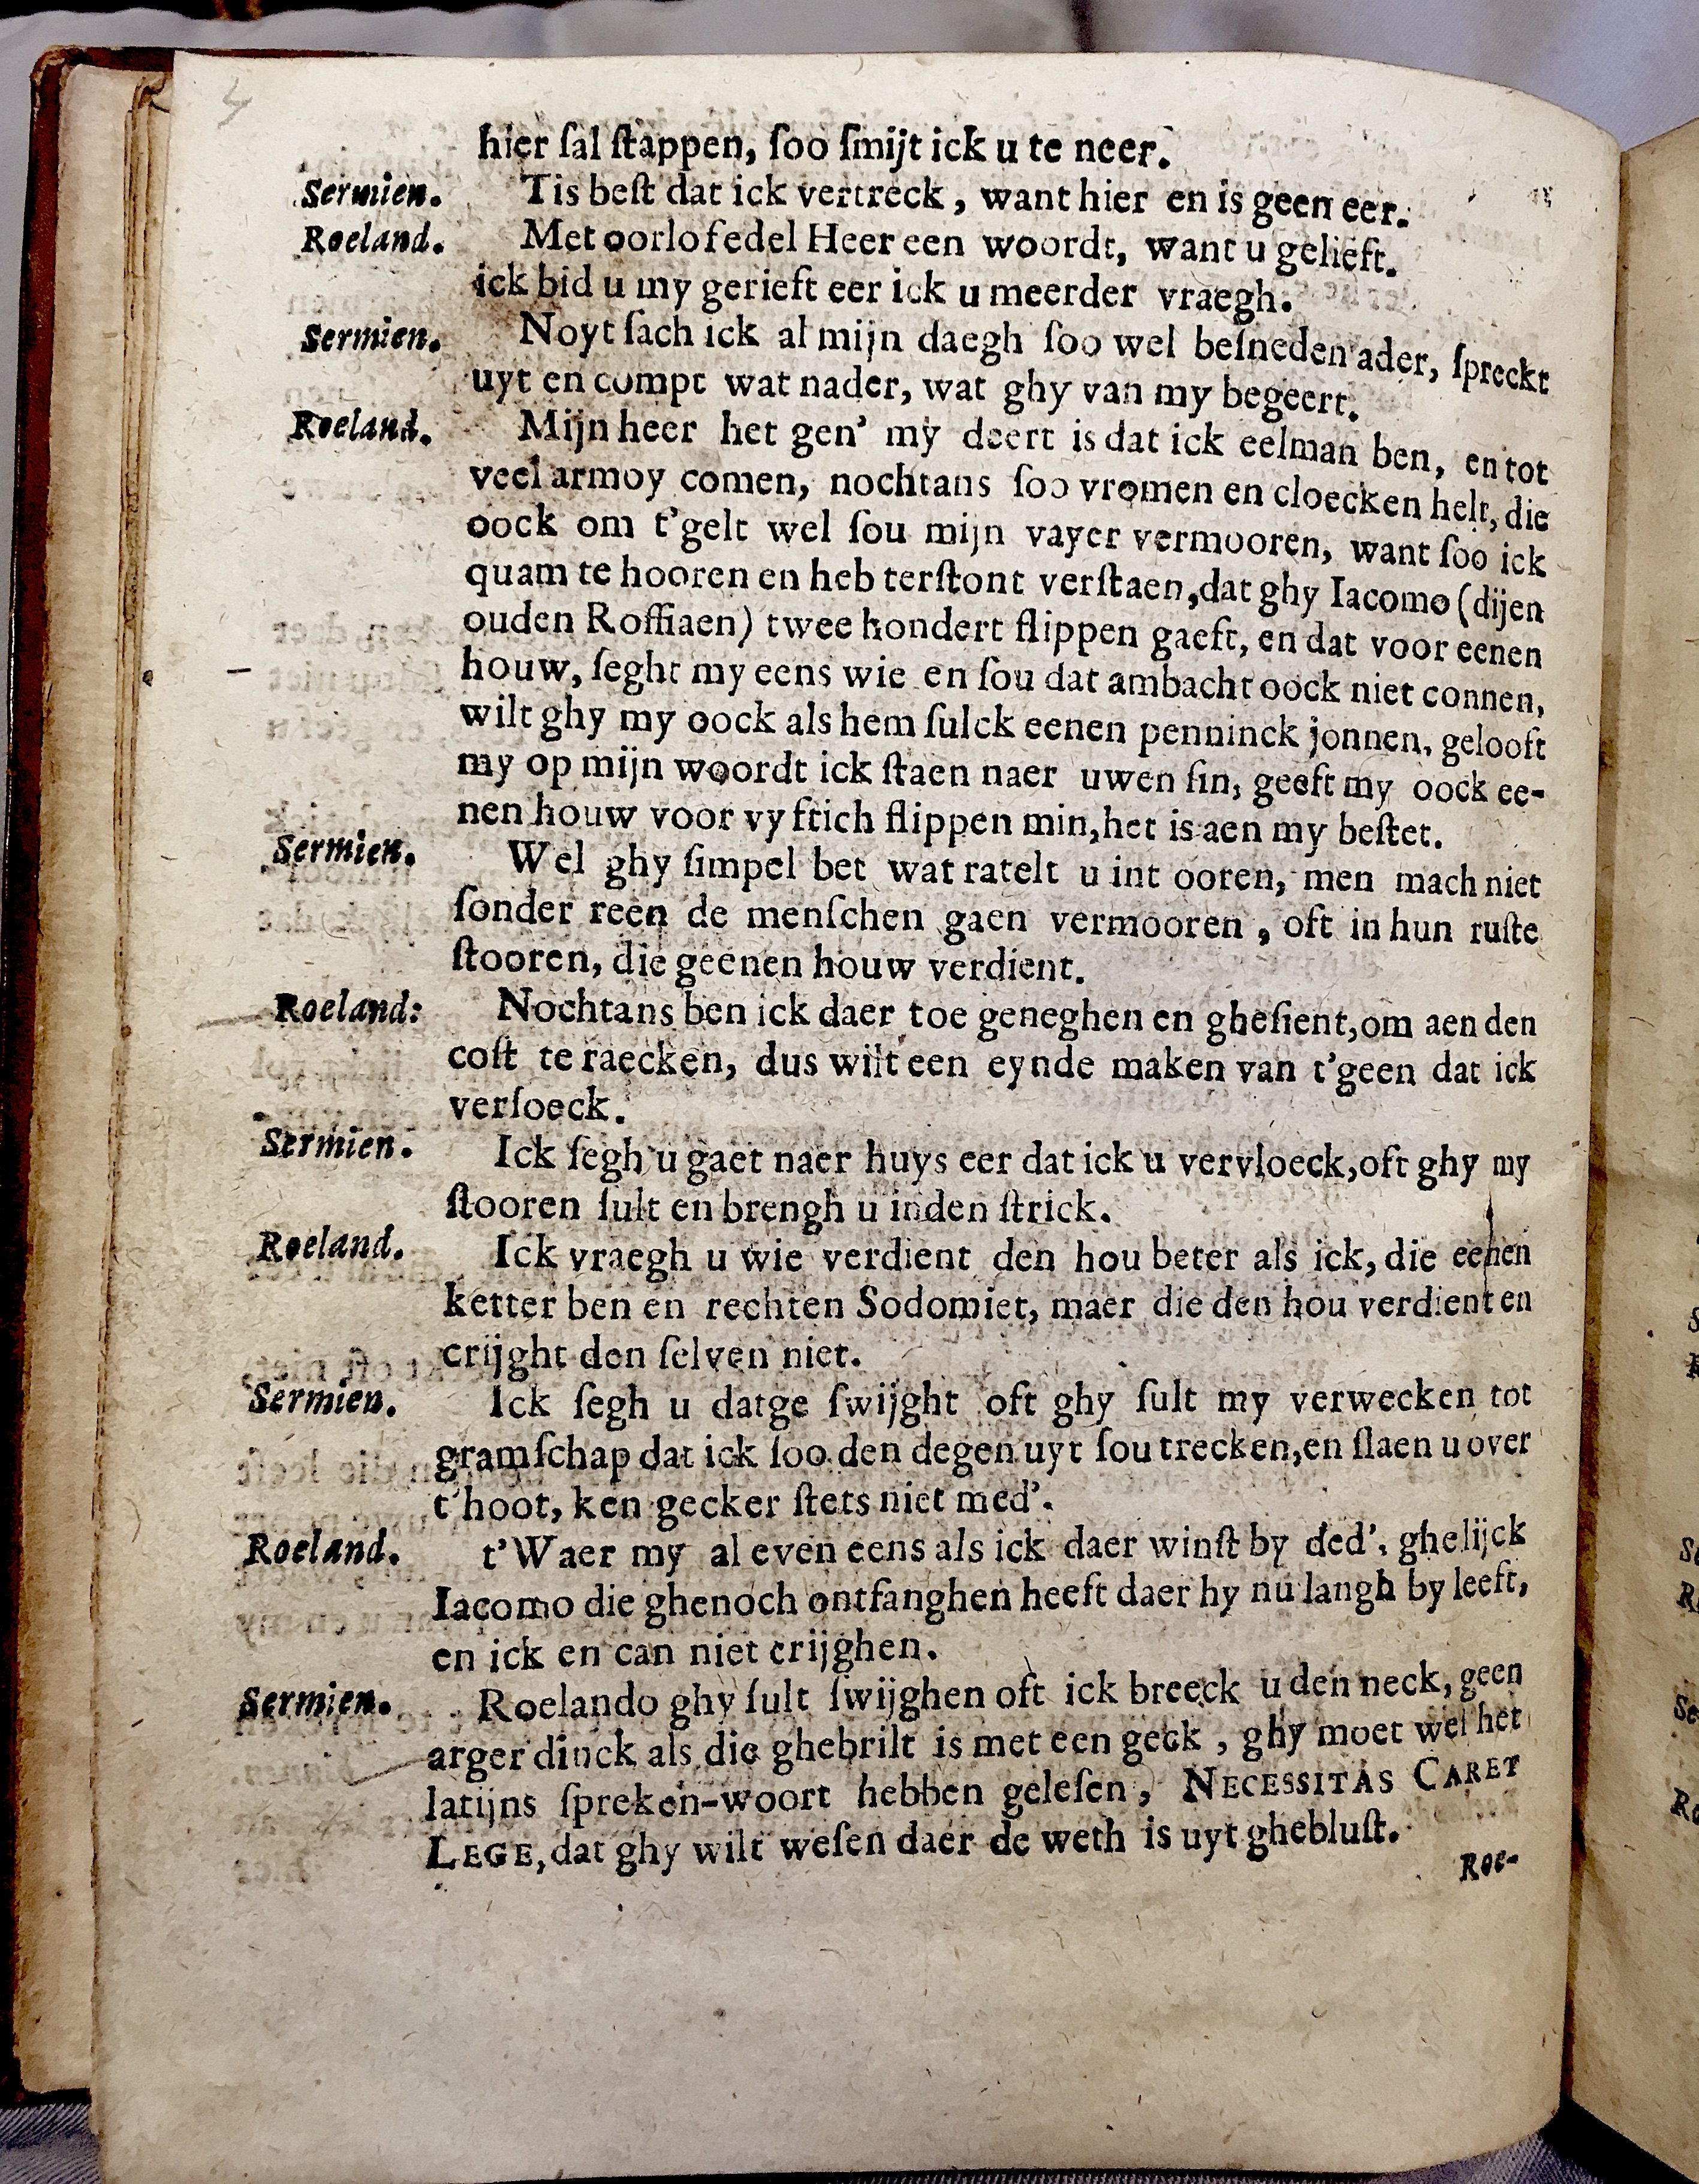 4
hier ſal ſtappen, ſoo ſmijt ick u te neer.
Sermien. Tis beſt dat ick vertreck, want hier en is geen eer.
Roeland. Met oorlof edel Heer een woordt, want u gelieft.
ick bid u my gerieft eer ick u meerder vraegh.
Sermien. Noyt ſach ick al mijn daegh ſoo wel beſneden ader, ſpreckt
uyt en compt wat nader, wat ghy van my begeert.
Roeland. Mijn heer het gen' my deert is dat ick eelman ben, en tot
veel armoy comen, nochtans ſoo vromen en cloecken helt, die
oock om t'gelt wel ſou mijn vayer vermooren, want ſoo ick
quam te hooren en heb terſtont verſtaen, dat ghy Iacomo (dijen
ouden Roffiaen) twee hondert ſlippen gaeft, en dat voor eenen
houw, ſeght my eens wie en ſou dat ambacht oock niet connen,
wilt ghy my oock als hem ſulck eenen penninck jonnen, gelooft
my op mijn woordt ick ſtaen naer uwen ſin, geeft my oock ee-
nen houw voor vyftich ſlippen min, het is aen my beſtet.
Sermien. Wel ghy ſimpel bet wat ratelt u int ooren, men mach niet
ſonder reen de menſchen gaen vermooren, oft in hun ruſte
ſtooren, die geenen houw verdient.
Roeland: Nochtans ben ick daer toe geneghen en gheſient, om aen den
coſt te raecken, dus wilt een eynde maken van t'geen dat ick
verſoeck.
Sermien. Ick ſegh u gaet naer huys eer dat ick u vervloeck, oft ghy my
ſtooren ſult en brengh u inden ſtrick.
Roeland. Ick vraegh u wie verdient den hou beter als ick, die eenen
ketter ben en rechten Sodomiet, maer die den hou verdient en
crijght den ſelven niet.
Sermien. Ick ſegh u datge ſwijght oft ghy ſult my verwecken tot
gramſchap dat ick ſoo den degen uyt ſou trecken, en ſlaen u over
t'hoot, ken gecker ſtets niet med'.
Roeland. t'Waer my al even eens als ick daer winſt by ded', ghelijck
Iacomo die ghenoch ontfanghen heeft daer hy nu langh by leeft,
en ick en can niet crijghen.
Sermien. Roelando ghy ſult ſwijghen oft ick breeck u den neck, geen
arger dinck als die ghebrilt is met een geck, ghy moet wel het
latijns ſpreken-woort hebben geleſen, NECESSITAS CARET
LEGE, dat ghy wilt weſen daer de weth is uyt ghebluſt.
Roe-